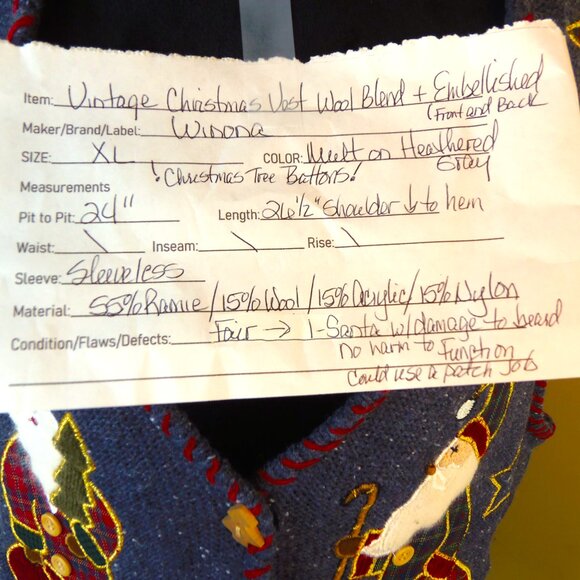 Item: Vintage Christmas Vest Wool Blend + Embellished
(Front and Back
Maker/Brand/Label: Winona
SIZE: XL COLOR: Mult on Heathered
Gray
! Christmas Tree Buttons!
Measurements
Pit to Pit: 24" Length: 26 1/2" Shoulder ↓ to hem
Waist: \ Inseam: \ Rise: \
Sleeve: Sleeveless
Material: 55% Ramie / 15% Wool / 15% Acrylic / 15% Nylon
Condition/Flaws/Defects: Four → 1-Santa w/damage to beard
No harm to Function
Could use a patch Job